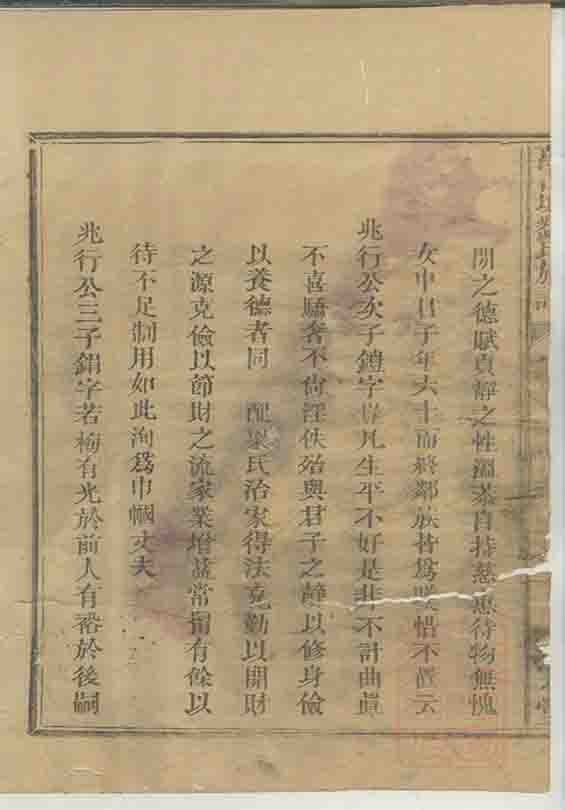 閒之德賦貞靜之性溫恭自持慈惠待物無愧
女中君子年六十而終鄰族皆為嘆惜不置云
兆行公次子鎧字 凡生平不好是非不計曲直
不喜驕奢不尚淫佚殆與君子之靜以修身儉
以養德者同 配 氏治家得法克勤以開財
之源克儉以節財之流家業增益常留有餘以
待不足制用如此洵爲巾幗丈夫
兆行公三子鋗字若梅有光於前人有裕於後嗣